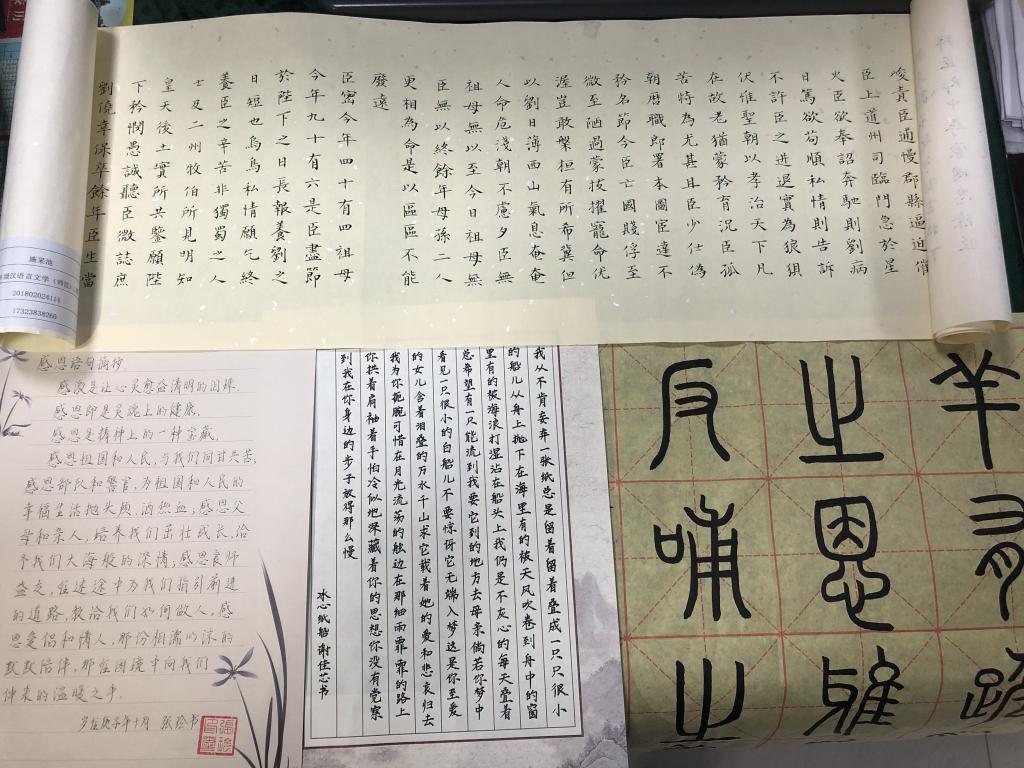 峻責臣逋慢郡縣逼迫催
臣上道州司臨門急於星
火臣欲奉詔奔馳則劉病
日篤欲苟順私情則告訴
不許臣之進退實為狼狽
伏惟聖朝以孝治天下凡
在故老猶蒙矜育況臣孤
苦特為尤甚且臣少仕偽
朝曆職郎署本圖宦達不
矜名節今臣亡國賤俘至
微至陋過蒙拔擢寵命優
渥豈敢槃桓有所希冀但
以劉日薄西山氣息奄奄
人命危淺朝不慮夕臣無
祖母無以至今日祖母無
臣無以終餘年母孫二人
更相為命是以區區不能
廢遠
臣密今年四十有四祖母
今年九十有六是臣盡節
於陛下之日長報養劉之
日短也烏鳥私情願乞終
養臣之辛苦非獨蜀之人
士及二州牧伯所見明知
皇天後土實所共鑒願陛
下矜憫愚誠聽臣微誌庶
劉僥幸保卒餘年臣生當
施采池
级汉语言文学（师范）
201802024114
17323838260
感恩语句摘抄
感激是让心灵愈益清明的因殊.
感恩即是灵魂上的健康.
感恩是精神上的一种宝藏.
感恩祖国和人民,与我们同甘共苦;
感恩部队和警官,为祖国和人民的
幸福生活抛头颅,洒热血;感恩父
母和亲人,培养我们茁壮成长,给
予我们大海般的深情;感恩良师
益友,在迷途中为我们指引前进
的道路,教给我们如何做人,感
恩爱侣和情人,那份相濡以沫的
默默陪伴,那在困境中向我们
伸来的温暖之手.
岁在庚子年十月 张玲书
我从不肯妄弃一张纸总是留着留着叠成一只只很小
的船儿从舟上抛下在海里有的被天风吹卷到舟中的窗
里有的被海浪打湿沾在船头上我仍是不灰心的每天叠着
总希望有一只能流到我要它到的地方去母亲倘若你梦中
看见一只很小的白船儿不要惊讶它无端入梦这是你至爱
的女儿含着泪叠的万水千山求它载着她的爱和悲哀归去
我为你扼腕可惜在月光流荡的舷边在那细雨霏霏的路上
你拱着肩袖着手怕冷似地深藏着你的思想你没有觉察
到我在你身边的步子放得那么慢
冰心纸船 谢佳芯书
羊有跪
之恩鴉
反哺之